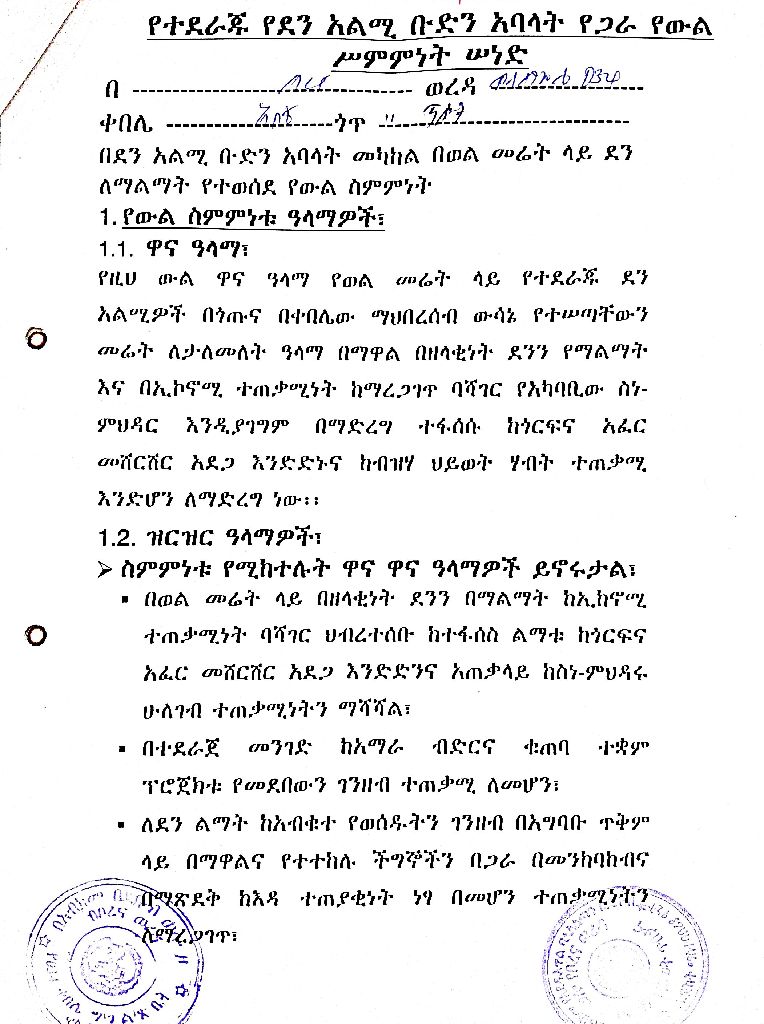 የተደራጁ የደን አልሚ ቡድን አባላት የጋራ የውል
ሥምምነት ሠነድ
በ ---------------------------------- ወረዳ -------------------
ቀበሌ --------------------ጎጥ ------------------------------
በደን አልሚ ቡድን አባላት መካከል በወል መሬት ላይ ደን
ለማልማት የተወሰደ የውል ስምምነት
1. የውል ስምምነቱ ዓላማዎች፣
1.1. ዋና ዓላማ፣
የዚህ ውል ዋና ዓላማ የወል መሬት ላይ የተደራጁ ደን
አልሚዎች በጎጡና በቀበሌው ማህበረሰብ ውሳኔ የተሠጣቸውን
መሬት ለታለመለት ዓላማ በማዋል በዘላቂነት ደንን የማልማት
እና በኢኮኖሚ ተጠቃሚነት ከማረጋገጥ ባሻገር የአካባቢው ስነ-
ምህዳር እንዲያገግም በማድረግ ተፋሰሱ ከጎርፍና አፈር
መሸርሸር አደጋ እንድድኑና ከብዝሃ ህይወት ሃብት ተጠቃሚ
እንድሆን ለማድረግ ነው፡፡
1.2. ዝርዝር ዓላማዎች፣
➢ ስምምነቱ የሚከተሉት ዋና ዋና ዓላማዎች ይኖሩታል፣
▪ በወል መሬት ላይ በዘላቂነት ደንን በማልማት ከኢኮኖሚ
ተጠቃሚነት ባሻገር ህብረተሰቡ ከተፋሰስ ልማቱ ከጎርፍና
አፈር መሸርሸር አደጋ እንድድንና አጠቃላይ ከስነ-ምህዳሩ
ሁለገብ ተጠቃሚነትን ማሻሻል፣
▪ በተደራጀ መንገድ ከአማራ ብድርና ቁጠባ ተቋም
ፕሮጀክቱ የመደበውን ገንዘብ ተጠቃሚ ለመሆን፣
▪ ለደን ልማት ከአብቁተ የወሰዱትን ገንዘብ በአግባቡ ጥቅም
ላይ በማዋልና የተተከሉ ችግኞችን በጋራ በመንከባከብና
በማጽደቅ ከእዳ ተጠያቂነት ነፃ በመሆን ተጠቃሚነትን
ለማረጋገጥ፣